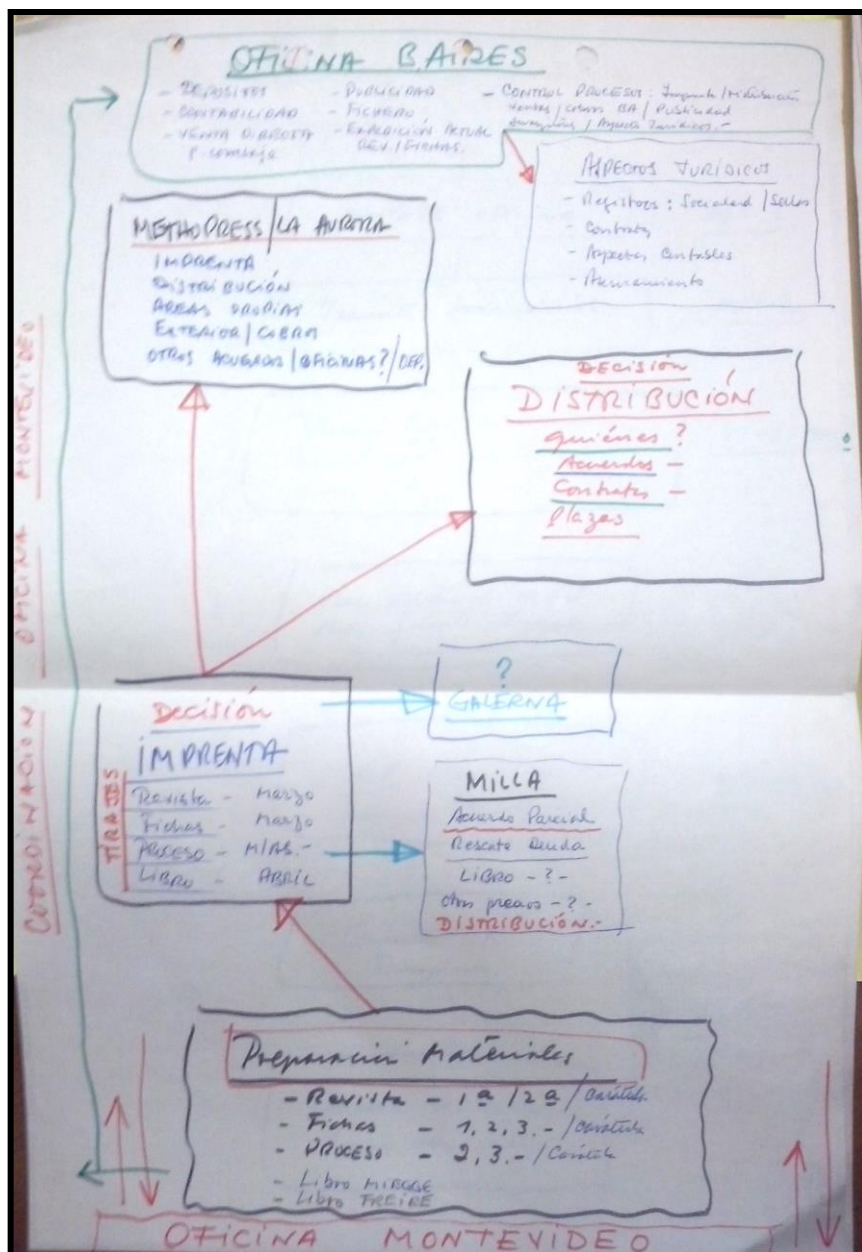 OFICINA B. AIRES
- DEPOSITOS
- CONTABILIDAD
- VENTA DIRECTA
- PUBLICIDAD
- FICHERO
- EXPEDICIÓN ACTUAL
REV / FICHAS.
- CONTROL PROCESOS: Imprenta / Distribución
Ventas / BA / Publicidad
/ Aspectos Jurídicos.-
ASPECTOS JURÍDICOS
- Registros: Sociedad / Sellos
- Contratos
- Aspectos Contables
- Asesoramiento
METHOPRESS / LA AURORA
IMPRENTA
DISTRIBUCIÓN
AREAS PROPIAS
EXTERIOR /
OTROS ACUERDOS / OFICINAS? / DEP.
DECISIÓN
DISTRIBUCIÓN
quiénes?
Acuerdos -
Contratos -
Plazos
?
GALERNA
Decisión
IMPRENTA
TIRAJES
Revista - Marzo
Fichas - Marzo
PROCESO - M/AB.-
LIBRO - ABRIL
MILLA
Acuerdo Parcial
Rescate Deuda
LIBRO - ? -
- ? -
DISTRIBUCIÓN.-
Preparación Materiales
- Revista - 1ª / 2ª / Carátula
- Fichas - 1, 2, 3.- / Carátula
- PROCESO - 2, 3.- / Carátula
- Libro
- Libro FREIRE
COORDINACION OFICINA MONTEVIDEO
OFICINA MONTEVIDEO